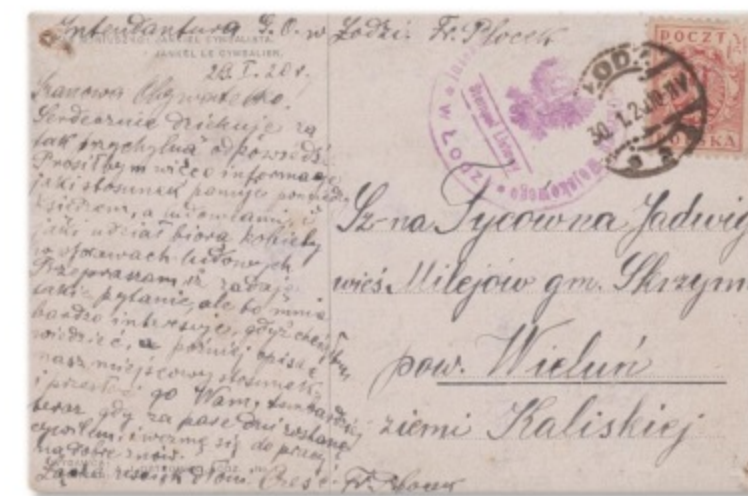 Intendantura G.O. w Łodzi. Fr. Płocek
JANKIEL CYMBALISTA.
JANKEL LE CYMBALIER.
29.I.20 r.
Szanowna Obywatelko.
Serdecznie dziękuję za
tak przychylną odpowiedź.
Prosiłbym więc o informację
jaki stosunek panuje pomiędzy
księdzem, a ludowcami, i
jaki udział biorą kobiety
w sprawach ludowych
Przepraszam, iż zadaję
takie pytanie, ale to mnie
bardzo interesuje, gdyż chciałbym
wiedzieć, a później opiszę
nasz miejscowy stosunek
i prześlę go Wam,
teraz gdy za parę dni zostanę
cywilem, i wezmę się do pracy
na dobre znów.
Cześć Fr. Płocek
Stempel Listowy
ŁÓDŹ
30.1.20
POCZTA
POLSKA
Sz-na Tycówna Jadwig
wieś Milejów gm. Skrzyn
pow. Wieluń
ziemi Kaliskiej